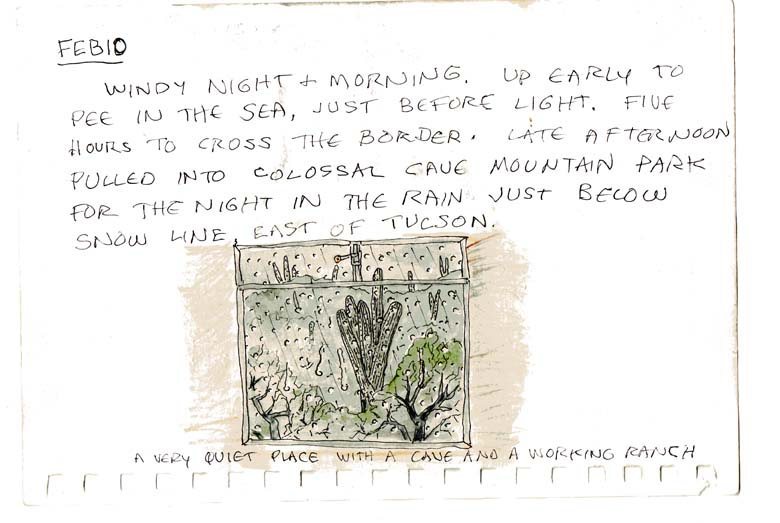 FEB10
WINDY NIGHT + MORNING. UP EARLY TO
PEE IN THE SEA, JUST BEFORE LIGHT. FIVE
HOURS TO CROSS THE BORDER. LATE AFTERNOON
PULLED INTO COLOSSAL CAVE MOUNTAIN PARK
FOR THE NIGHT IN THE RAIN JUST BELOW
SNOW LINE, EAST OF TUCSON.
A VERY QUIET PLACE WITH A CAVE AND A WORKING RANCH